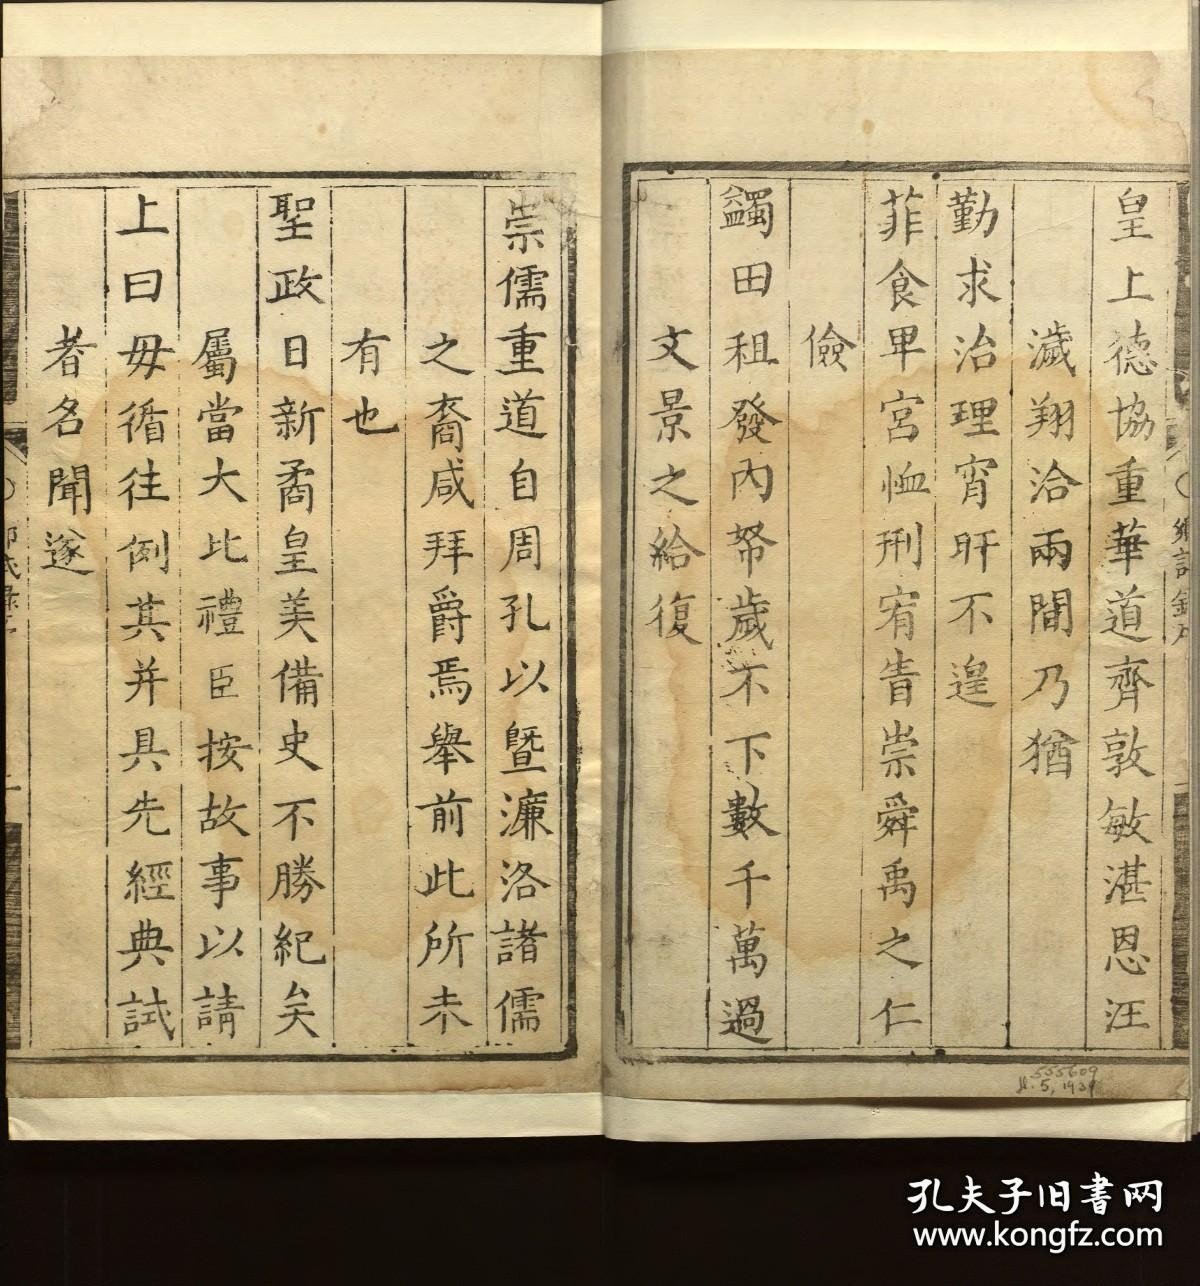 皇上德協重華道齊敦敏湛恩汪
濊翔洽兩間乃猶
勤求治理宵旰不遑
菲食卑宮恤刑宥眚崇舜禹之仁
儉
蠲田租發內帑歲不下數千萬過
文景之給復
崇儒重道自周孔以暨濂洛諸儒
之裔咸拜爵焉舉前此所未
有也
聖政日新矞皇美備史不勝紀矣
屬當大比禮臣按故事以請
上曰毋循往例其并具先經典試
者名聞遂
555609
Jl. 5, 1939
孔夫子旧书网
www.kongfz.com